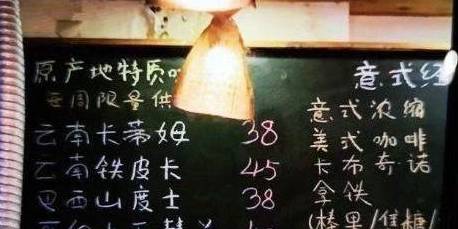 原产地特质
每周限量供
云南卡蒂姆 38
云南铁皮卡 45
巴西山度士 38
意式经
意式浓缩
美式咖啡
卡布奇诺
拿铁
(榛果/焦糖/